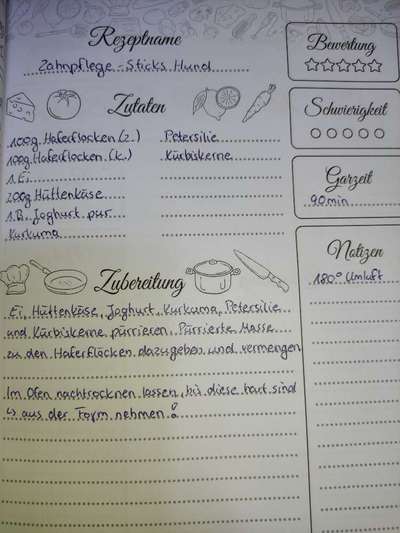 Rezeptname
Zahnpflege-Sticks Hund
Bewertung
Schwierigkeit
Garzeit
90min
Zutaten
100g Haferflocken (z.) Petersilie
100g Haferflocken (k.) Kürbiskerne
1 Ei
200g Hüttenkäse
1 B. Joghurt pur
Kurkuma
Notizen
180° Umluft
Zubereitung
Ei, Hüttenkäse, Joghurt, Kurkuma, Petersilie
und Kürbiskerne pürrieren. Pürrierte Masse
zu den Haferflocken dazugeben und vermengen
Im Ofen nachtrocknen lassen, bis diese hart sind
↳ aus der Form nehmen!